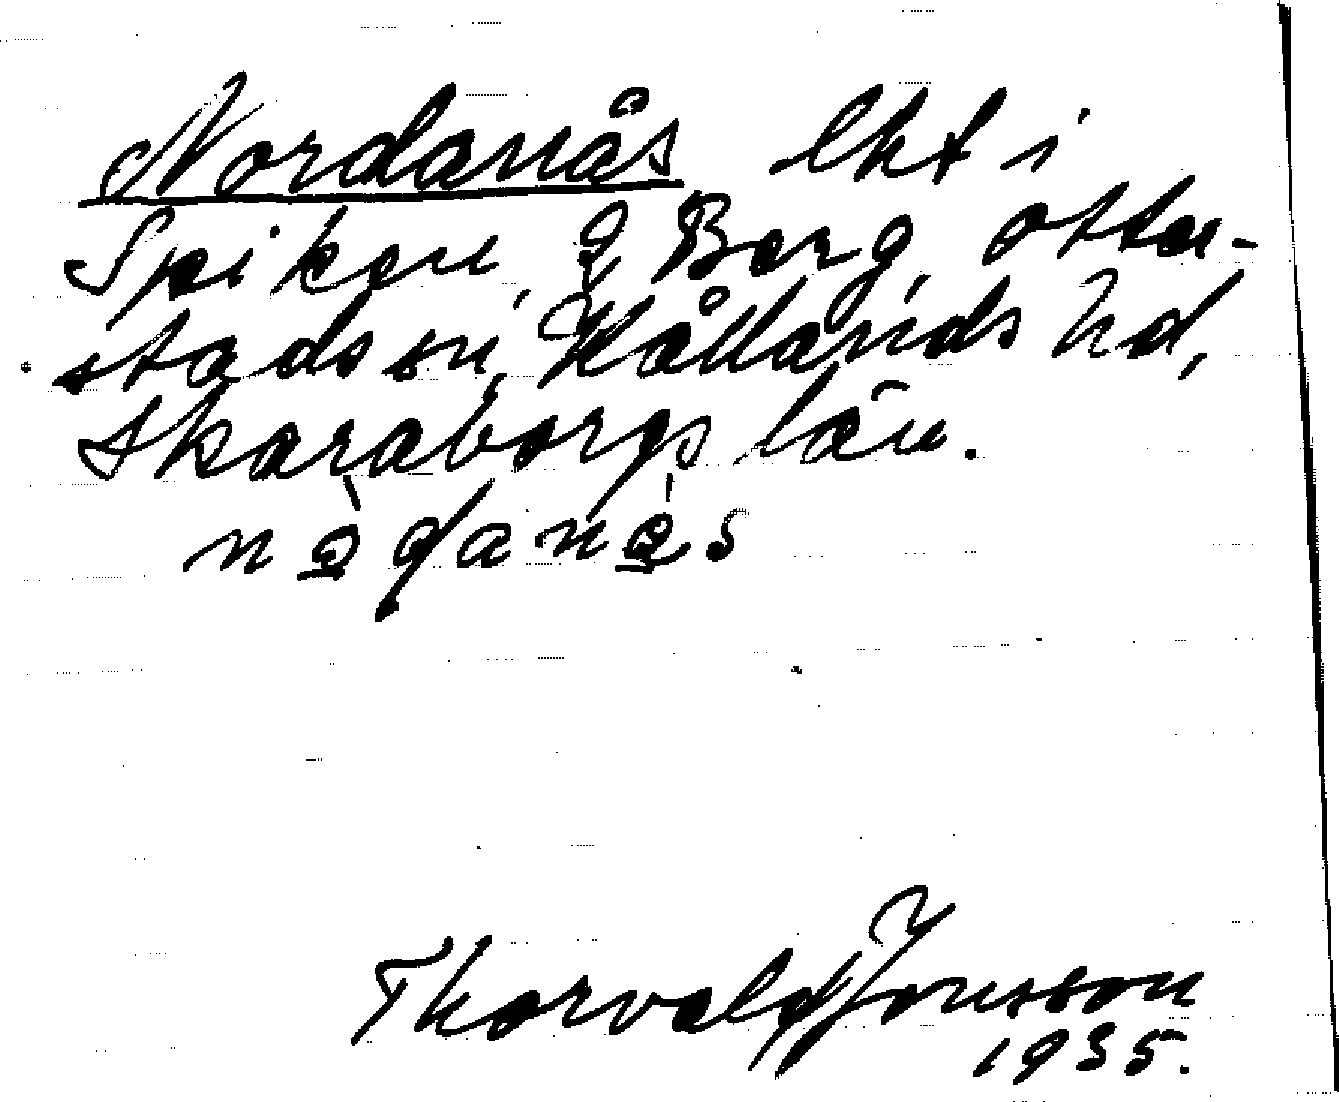 Nordanås lht i
Spiken, Q Berg, Otter-
stads sn, Kållands hd,
Skaraborgs län.
Thorvald Jonsson
1935.